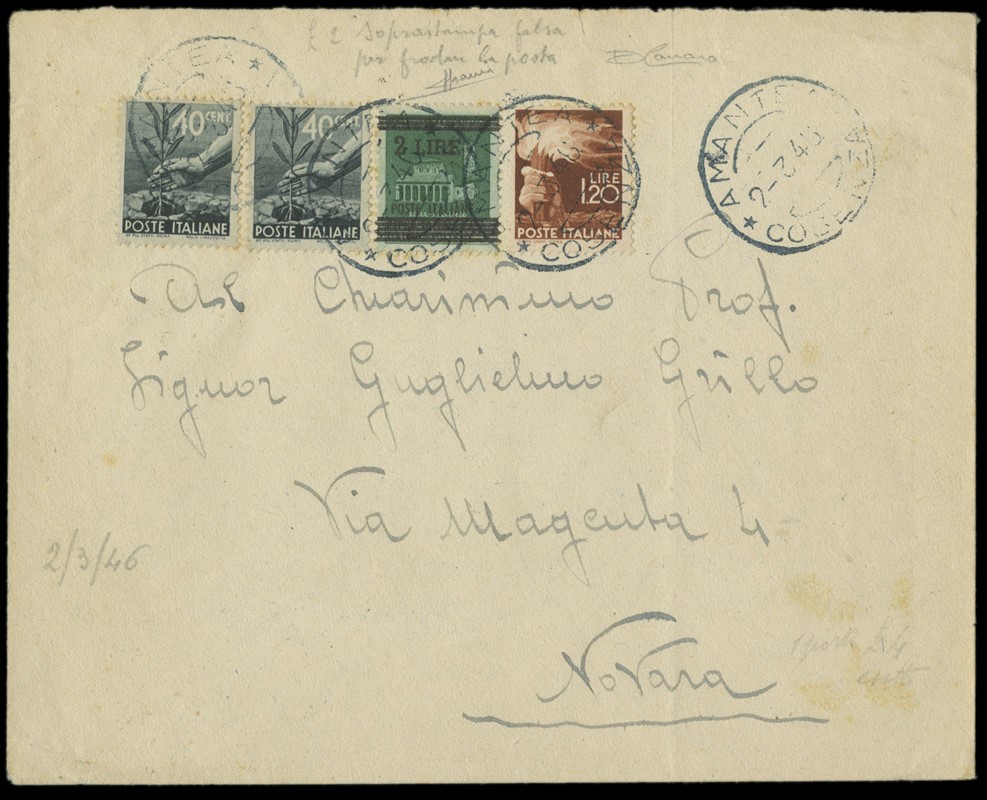 £ 2 Soprastampa falsa
per frodare la posta
40 CENT.
POSTE ITALIANE
40 CENT.
POSTE ITALIANE
2 LIRE
POSTE ITALIANE
LIRE
1.20
POSTE ITALIANE
AMANTEA
2-3.46
★ COSENZA
Al Chiarissimo Prof.
Signor Guglielmo Grillo
Via Magenta 4
2/3/46
£ 4
Novara